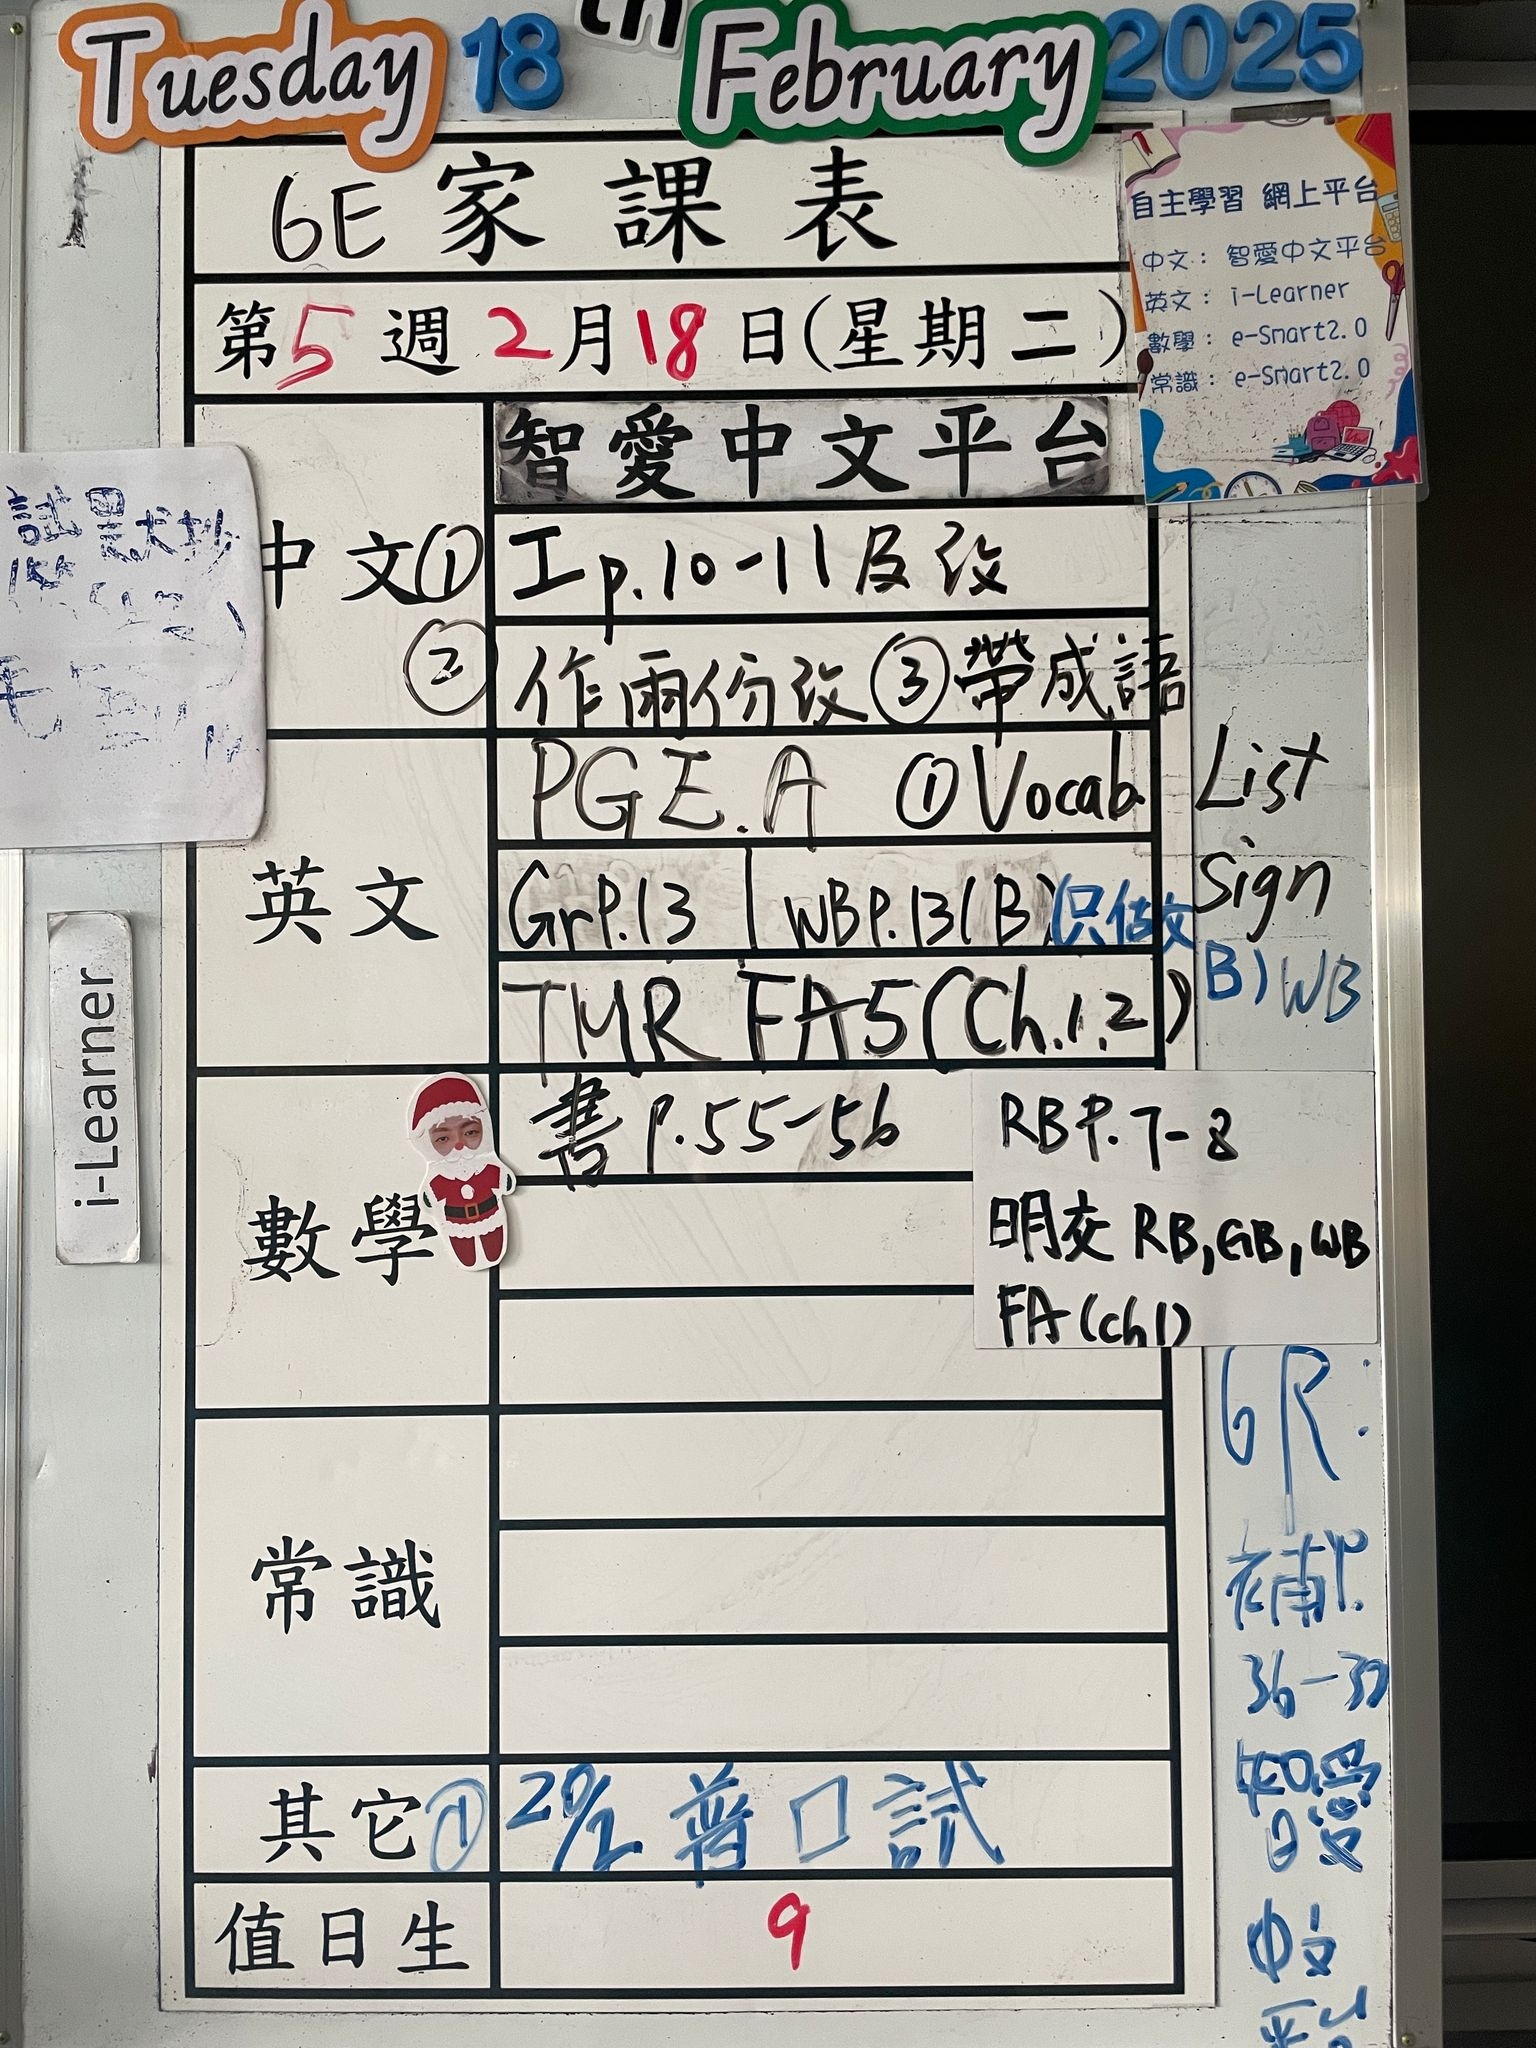 Tuesday 18th February 2025
6E 家課表
第5週2月18日(星期二)
自主學習 網上平台
中文：智愛中文平台
英文：i-Learner
數學：e-Smart2.0
常識：e-Smart2.0
智愛中文平台
中文① 工p.10-11及改
② 作兩份改 ③帶成語
試默抄
英文
PGE.A ①Vocab. List
GrP.13 | WBP.13(B) Sign
只做文B) WB
TMR FA5(Ch.1,2)
i-Learner
數學
書 p.55-56
RBP.7-8
明交 RB,GB,WB
FA(ch1)
常識
6R:
補P.
36-37
智愛
中文
平台
其它① 20/2 普口試
值日生 9